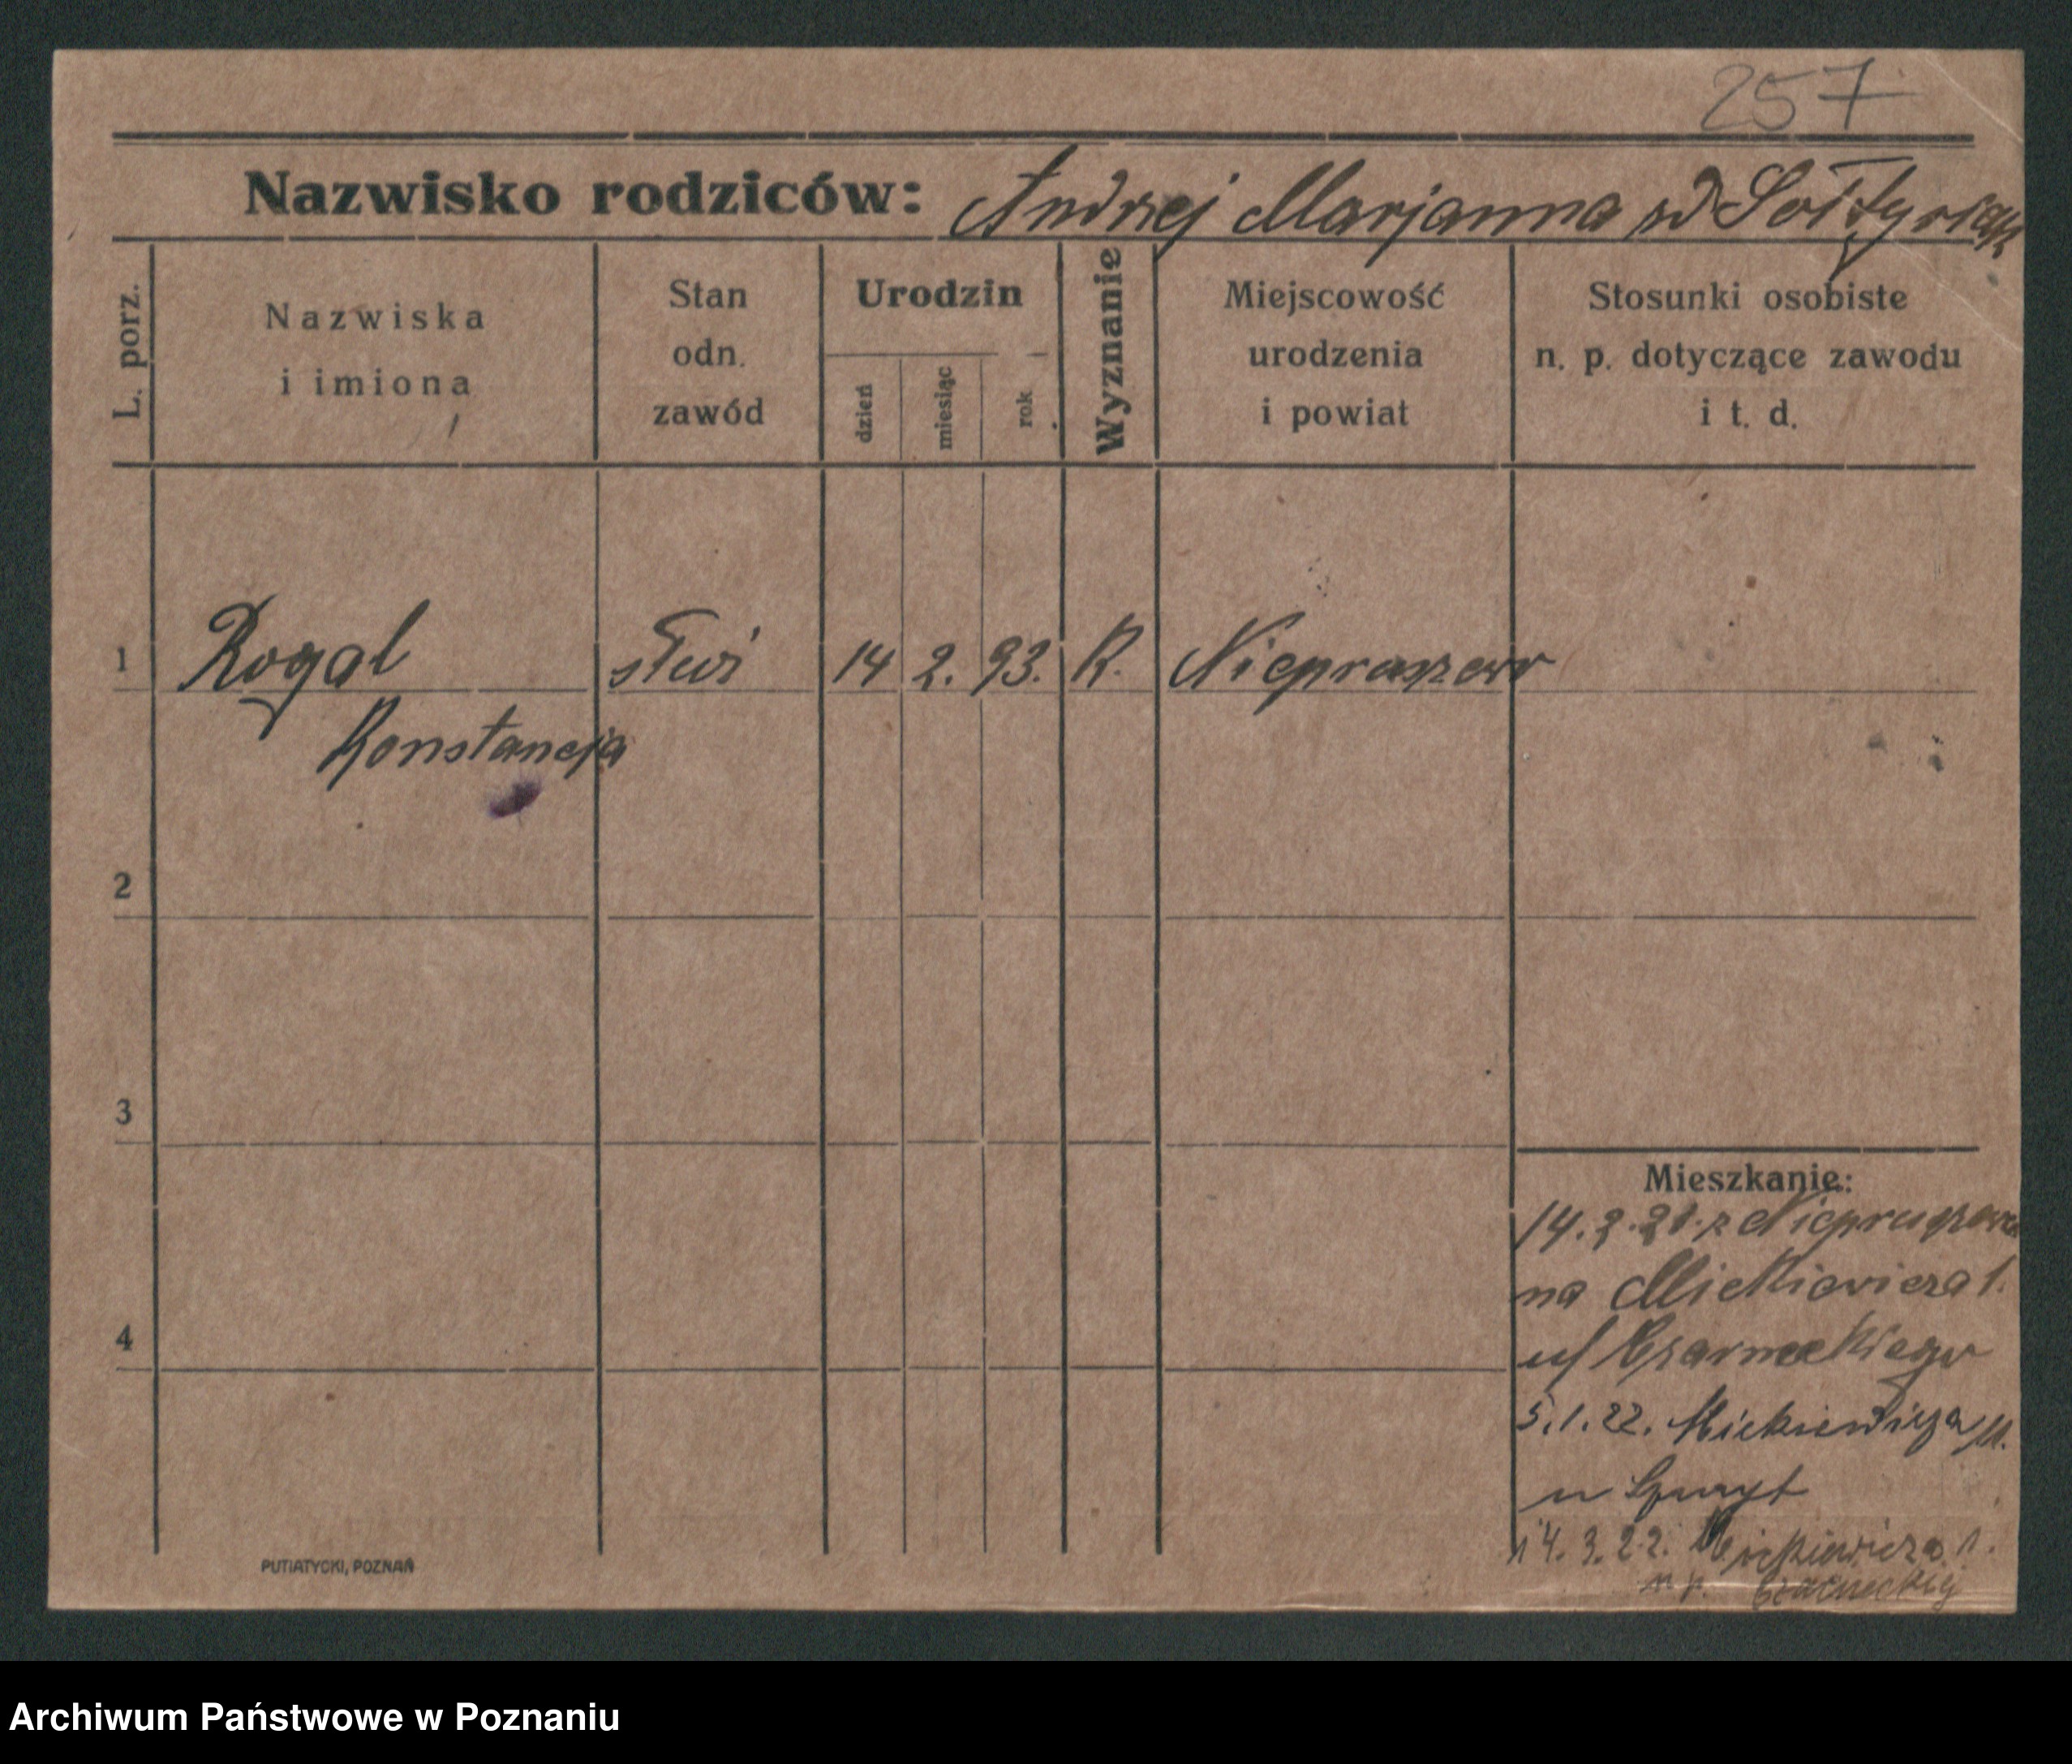 257
Nazwisko rodziców: Andrzej Marjanna
L. porz.
Nazwiska
i imiona
Stan
odn.
zawód
Urodzin
dzień
miesiąc
rok
Wyznanie
Miejscowość
urodzenia
i powiat
Stosunki osobiste
n. p. dotyczące zawodu
i t. d.
1 Rogal 14 2. 93. R. Niepraszewo
Konstancja
2
3
4
Mieszkanie:
14.2.21. z
na Mickiewicza 1.
ul Czarneckiego
5.1.22. Mickiewicza
14.3.22. Mickiewicza 1.
Czarneckiej
PUTIATYCKI, POZNAŃ
Archiwum Państwowe w Poznaniu